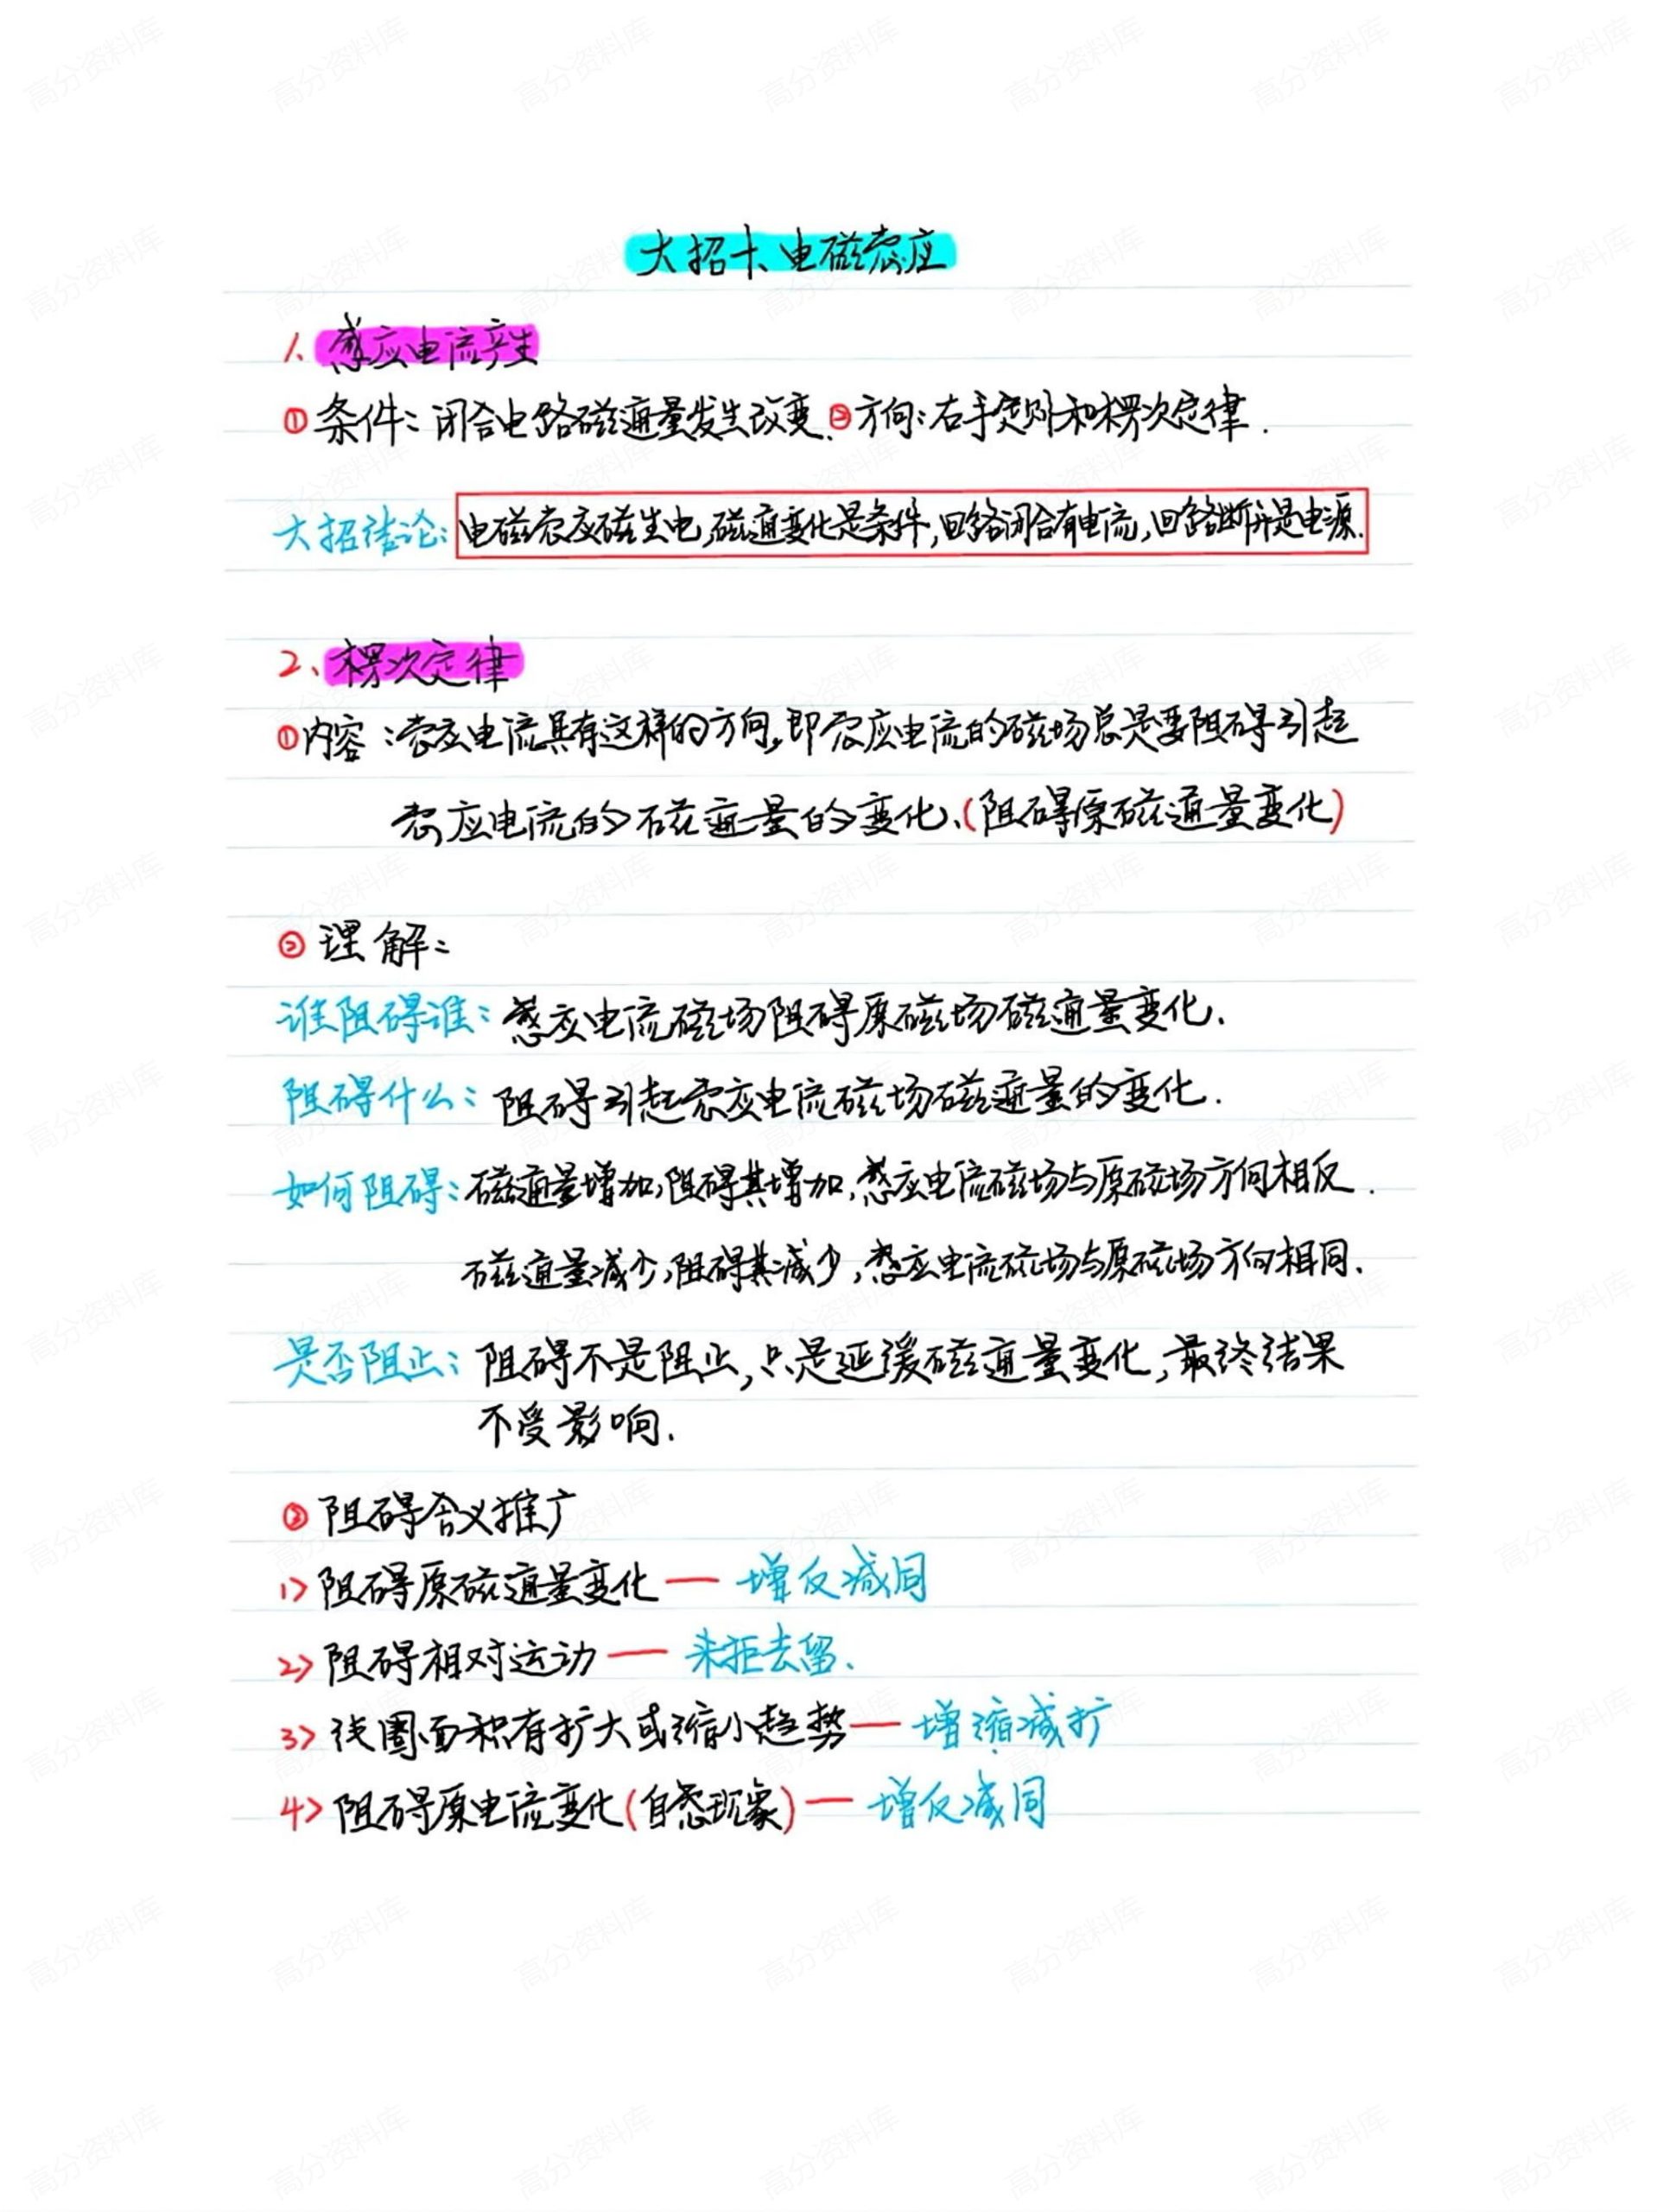 大招十、电磁感应
1、感应电流产生
①条件：闭合电路磁通量发生改变、②方向：右手定则和楞次定律.
大招结论：电磁感应磁生电,磁通变化是条件,回路闭合有电流,回路断开是电源.
2、楞次定律
①内容：感应电流具有这样的方向,即感应电流的磁场总是要阻碍引起
感应电流的磁通量的变化、(阻碍原磁通量变化)
②理解：
谁阻碍谁：感应电流磁场阻碍原磁场磁通量变化.
阻碍什么：阻碍引起感应电流磁场磁通量的变化.
如何阻碍：磁通量增加,阻碍其增加,感应电流磁场与原磁场方向相反.
磁通量减少,阻碍其减少,感应电流磁场与原磁场方向相同.
是否阻止：阻碍不是阻止,只是延缓磁通量变化,最终结果
不受影响.
③阻碍含义推广
1>阻碍原磁通量变化—增反减同
2>阻碍相对运动—来拒去留.
3>线圈面积有扩大或缩小趋势—增缩减扩
4>阻碍原电流变化(自感现象)—增反减同
高分资料库